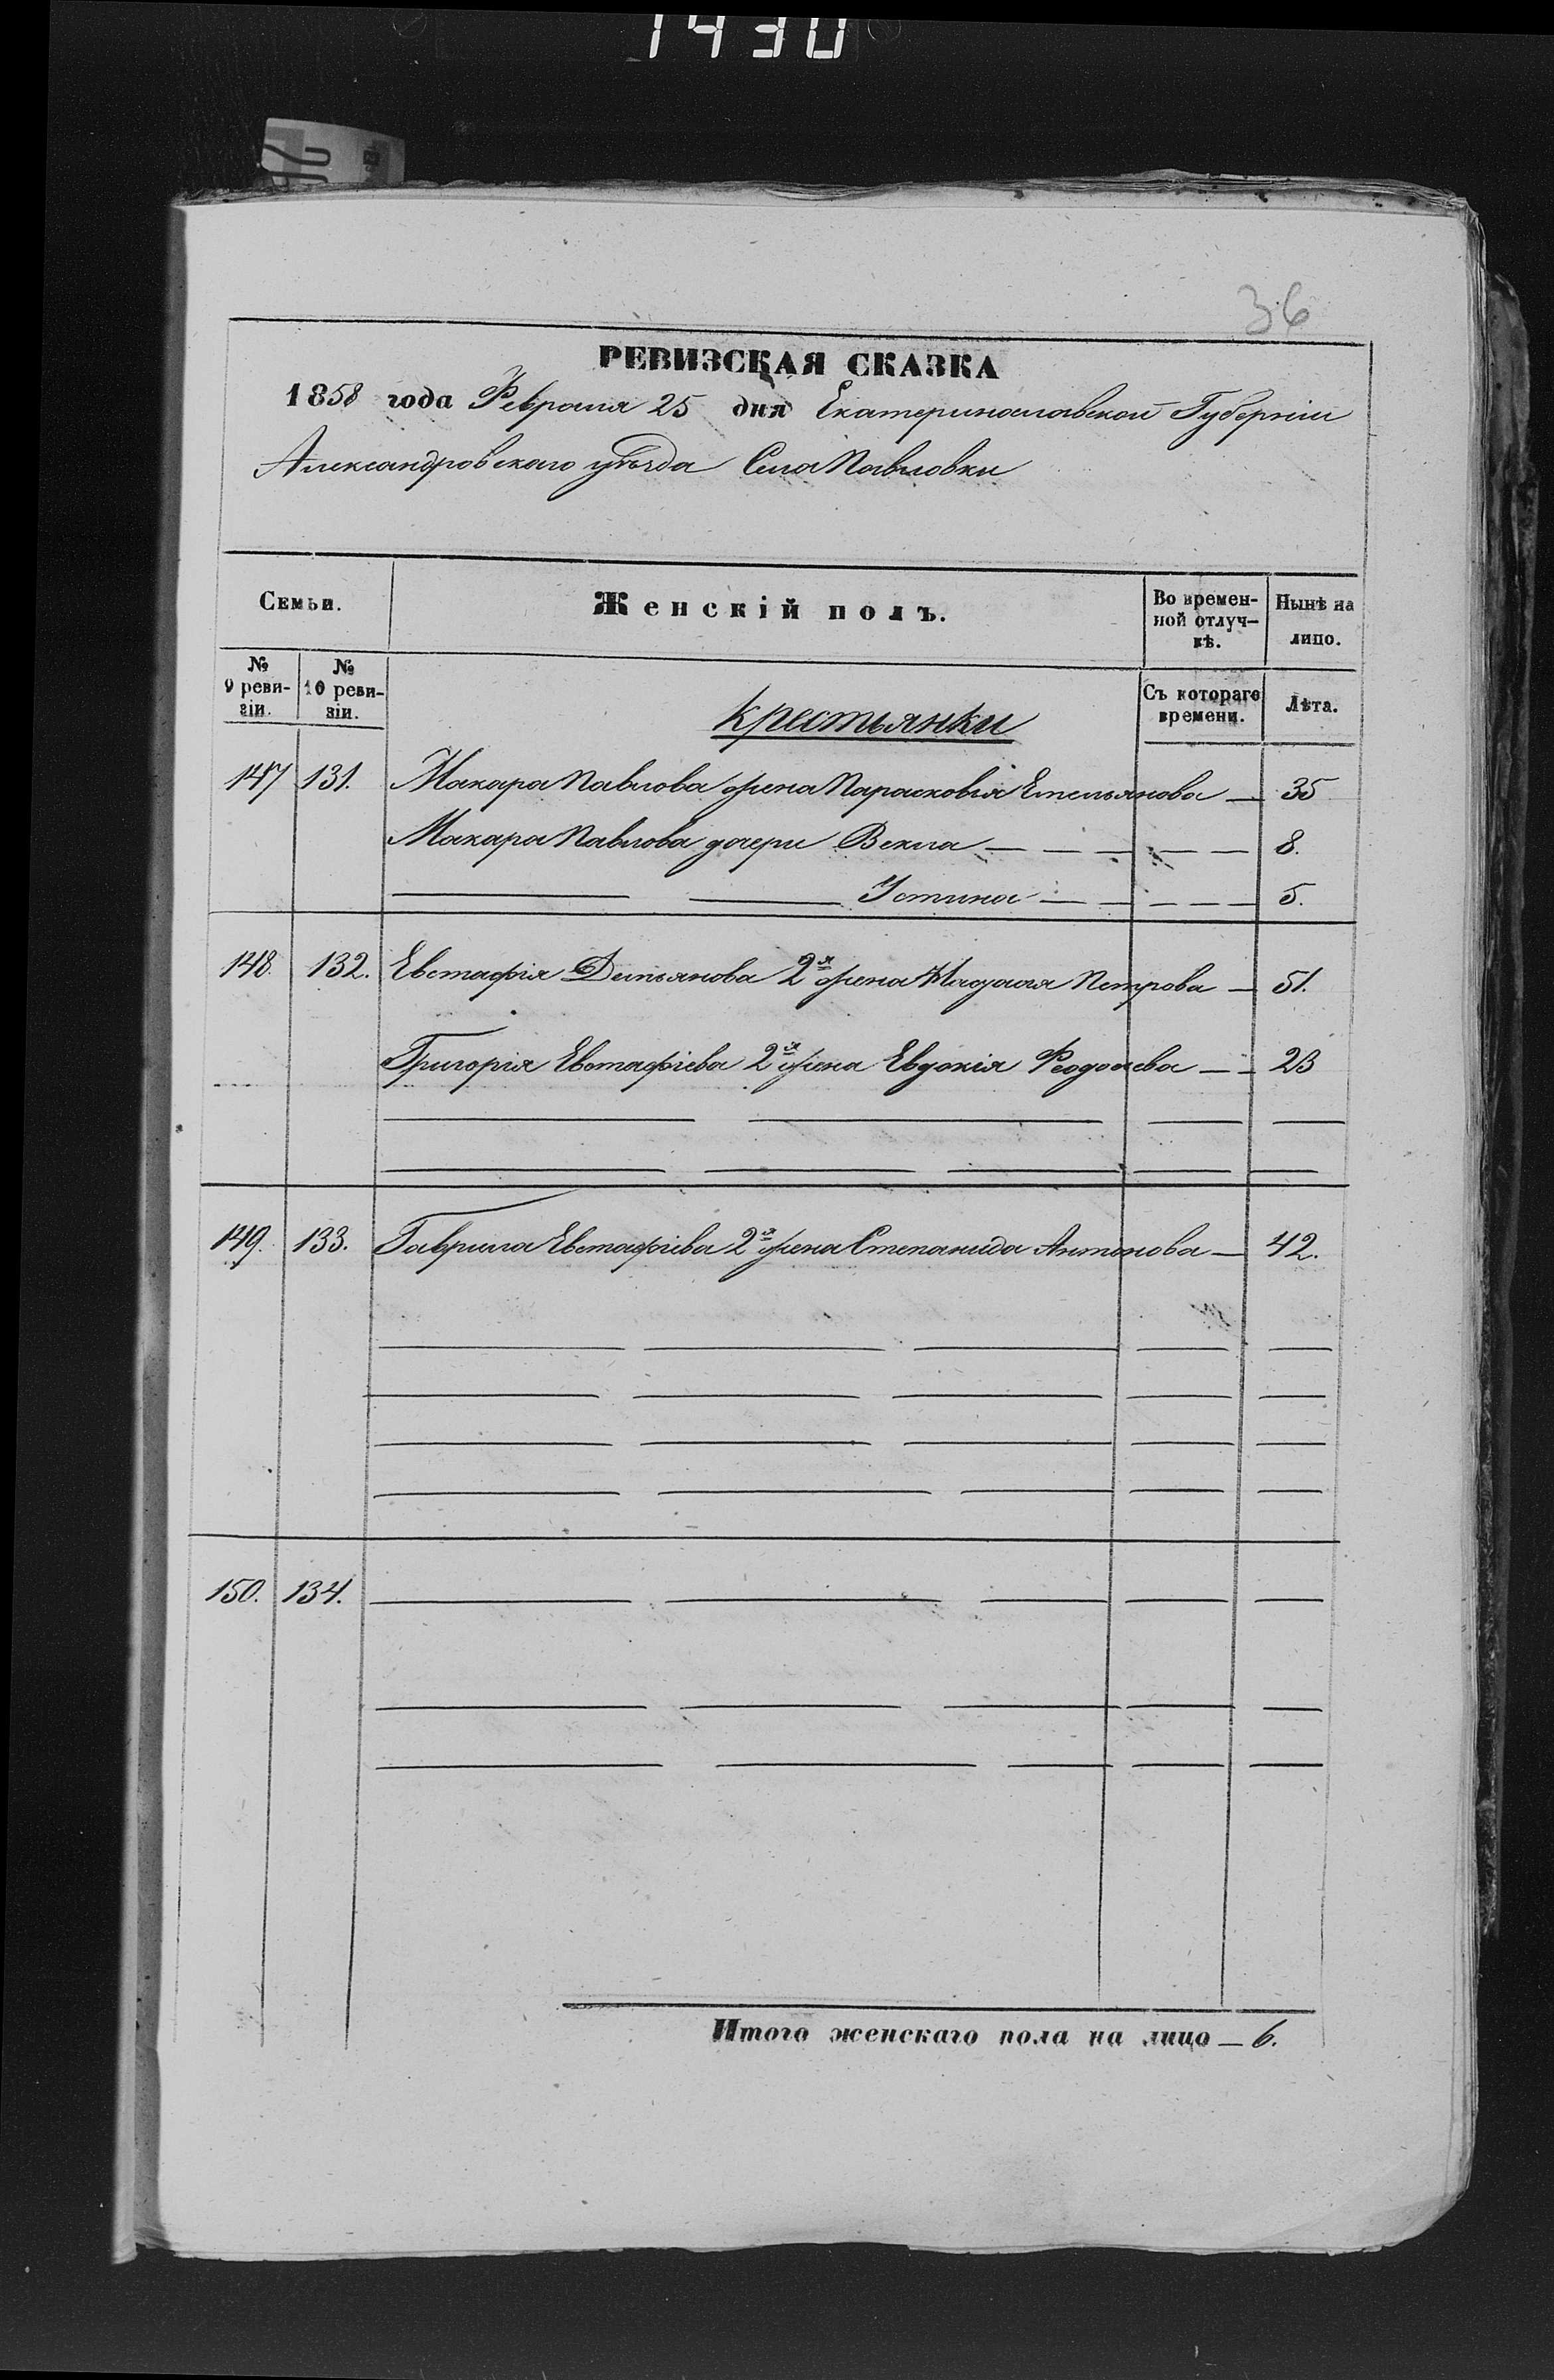 1430
36
РЕВИЗСКАЯ СКАЗКА
1858 года Февраля 25 дня Екатеринославской Губерніи
Александровскаго уѣзда Села Павловки
Семьи.
Женскій полъ.
Во времен-
ной отлуч-
кѣ.
Нынѣ на
лицо.
№
9 реви-
зіи.
№
10 реви-
зіи.
Съ котораго
времени.
Лѣта.
крестьянки
147 131. Макара Павлова жена Парасковія Емельянова — 35
Макара Павлова дочери Векла — — — — — — 8.
Устина — — — — — 5.
148. 132. Евстафія Демьянова 2я жена Петрова — 51.
Григорія Евстафіева 2я жена Евдокія Феодосіева — — 23
149. 133. Гаврила Евстафіева 2я жена Степанида Антонова — 42.
150. 134.
Итого женскаго пола на лицо — 6.